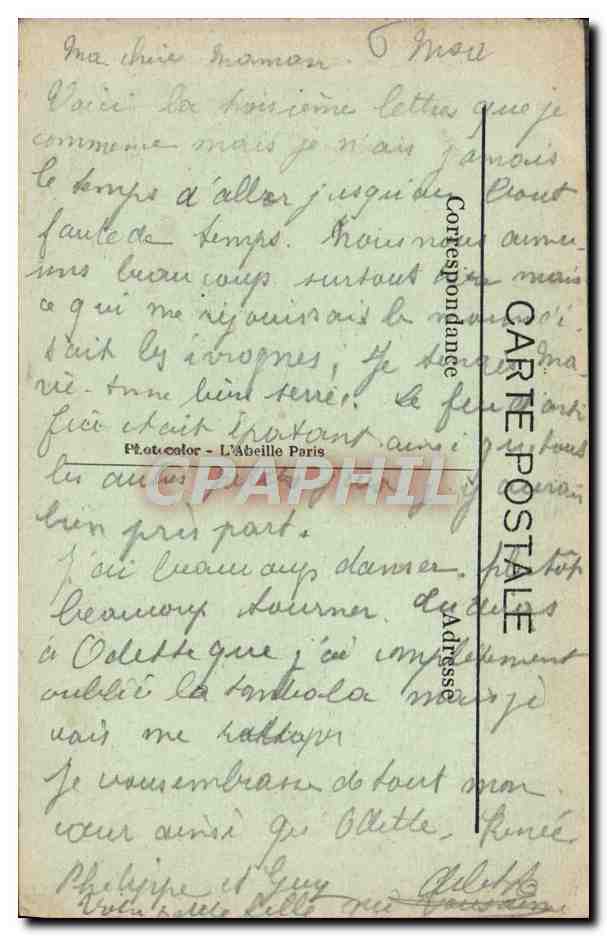 Ma chère Maman.
Voici la troisième lettres que je
commence mais je n'ais jamais
le temps d'aller jusqu'au bout
faute de temps. Nous nous amu-
sons beaucoup surtout mais
ce qui me réjouissais le moins c'é
tait les ivrognes, je tenais Ma-
rie-Anne bien serré. Le feu d'arti
fice était épatant ainsi que tous
les autres j'y aurais
bien pris part.
J'ai beaucoup danser, plutôt
beaucoup tourner. Tu diras
à Odette que j'ai complètement
oublié la tombola mais je
vais me rattraper
Je vous embrasse de tout mon
cœur ainsi qu'Odette. Renée
Philippe et Guy
CARTE POSTALE
Correspondance
Adresse
Photocolor - L'Abeille Paris
CPAPHIL